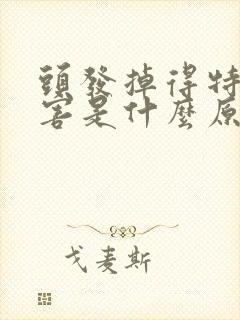 頭發掉得特
害是什麼原
戈麦斯